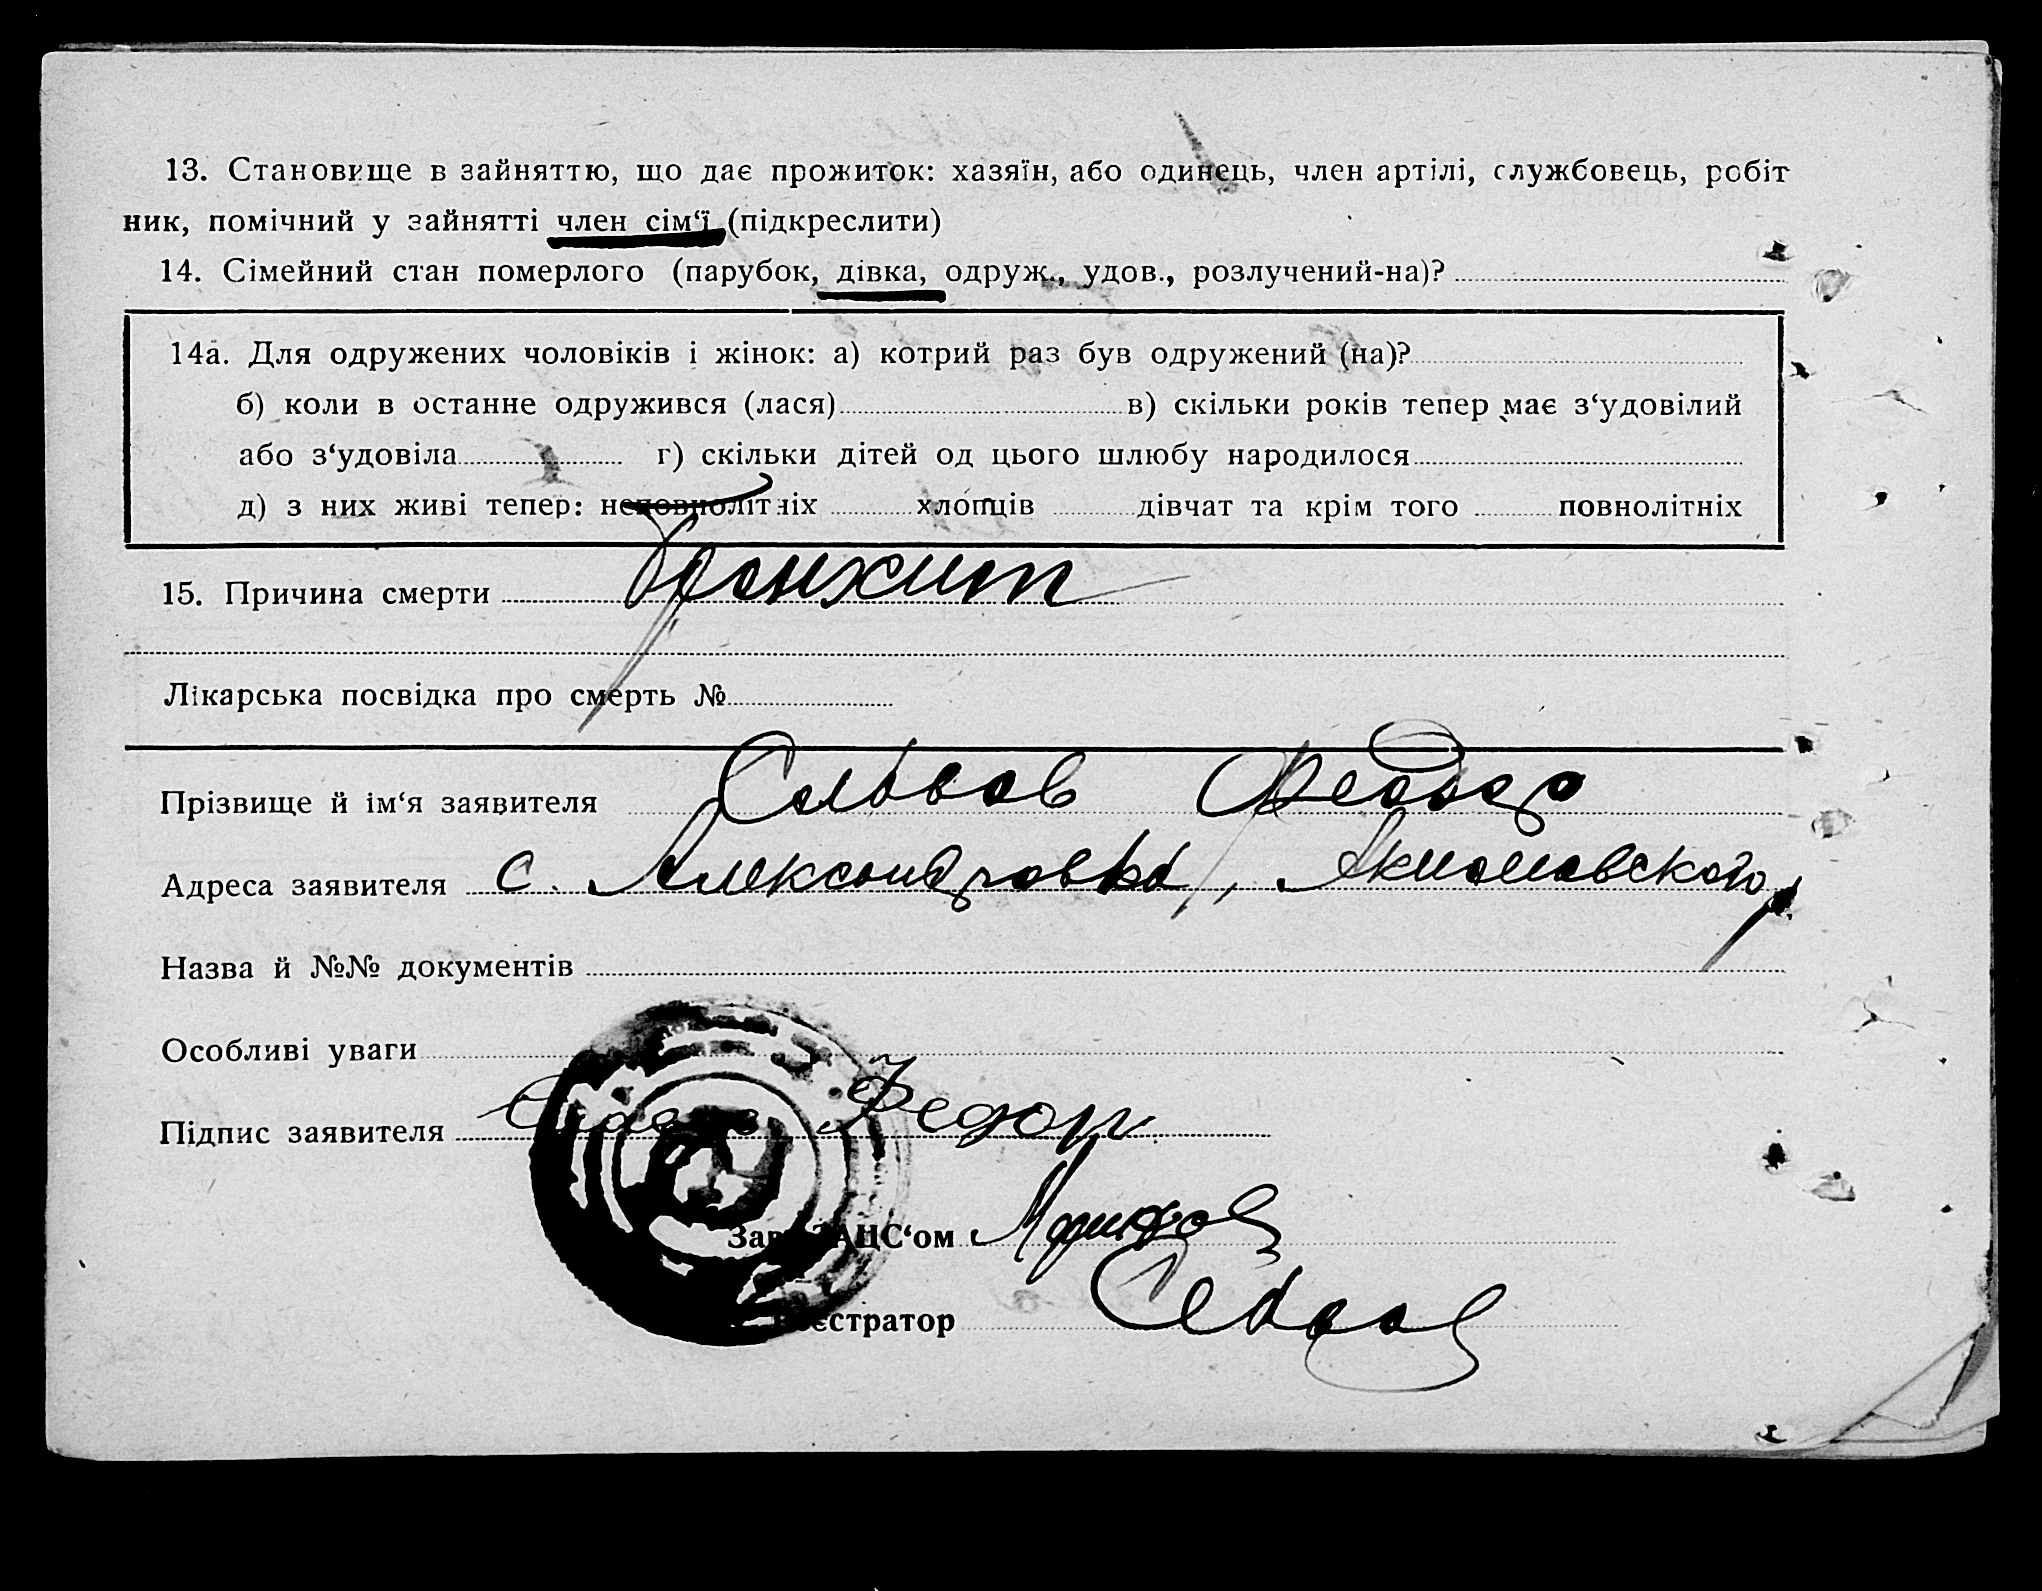 13. Становище в зайняттю, що дає прожиток: хазяїн, або одинець, член артілі, службовець, робіт
ник, помічний у зайнятті член сім‘ї (підкреслити)
14. Сімейний стан померлого (парубок, дівка, одруж., удов., розлучений-на)?
14а. Для одружених чоловіків і жінок: а) котрий раз був одружений (на)?
б) коли в останне одружився (лася) в) скільки років тепер має з‘удовілий
або з‘удовіла г) скільки дітей од цього шлюбу народилося
д) з них живі тепер: неповнолітніх хлопців дівчат та крім того повнолітніх
15. Причина смерти Бронхит
Лікарська посвідка про смерть №
Прізвище й ім‘я заявителя Федор
Адреса заявителя с. Александровка, Акимовского
Назва й №№ документів
Особливі уваги
Підпис заявителя Федор
Зав. ЗАЦС‘ом
Реєстратор